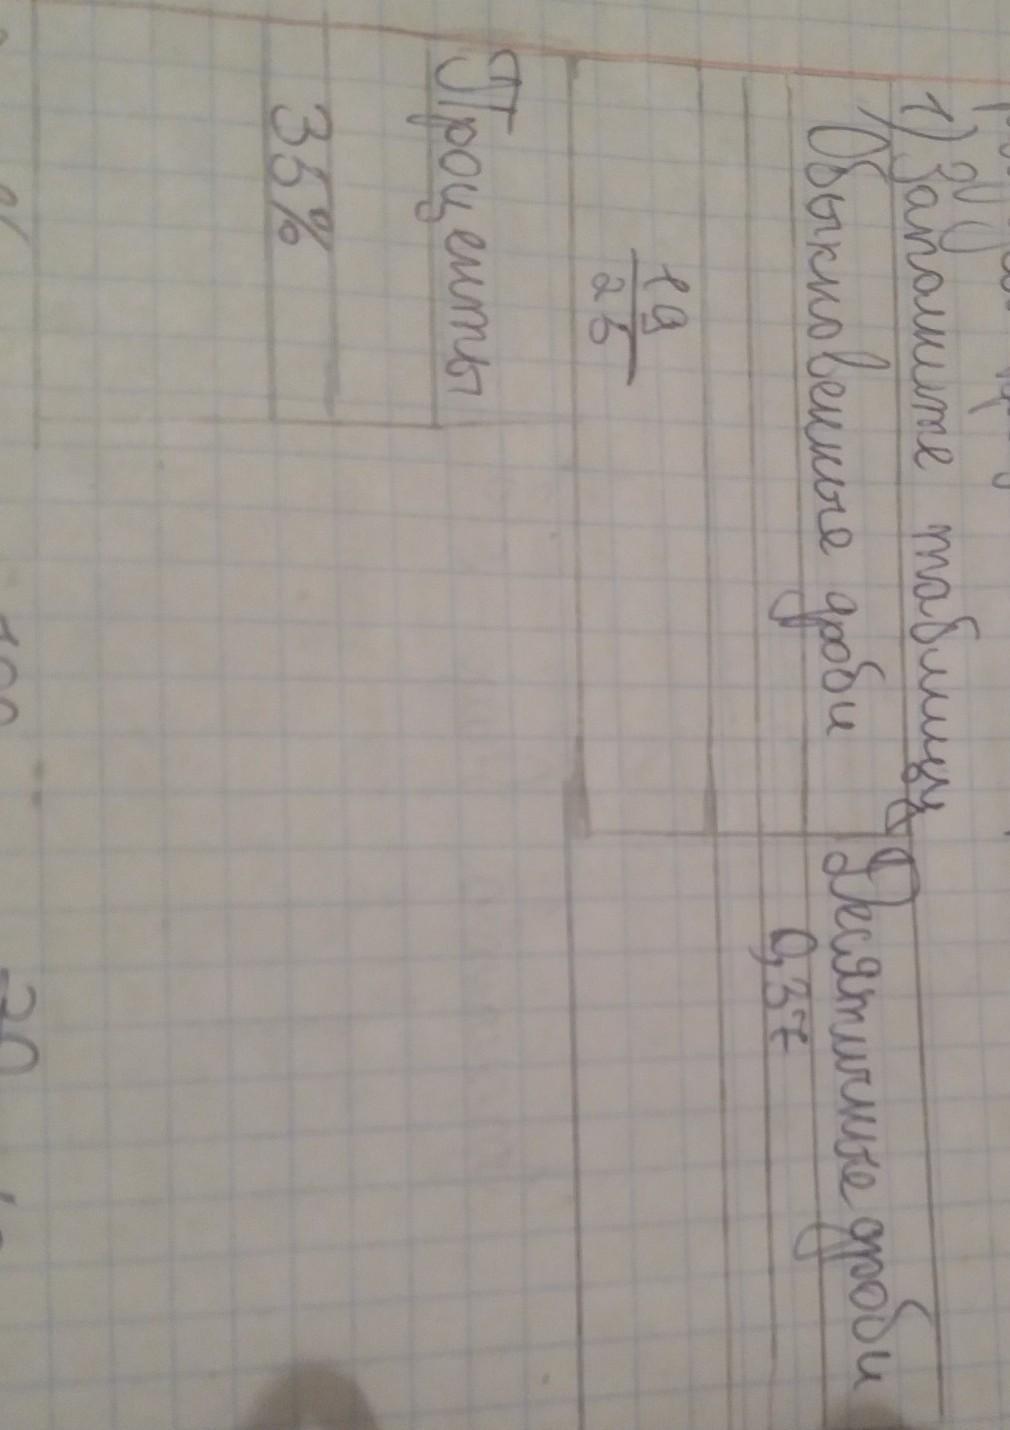 1) Заполните таблицу
Обыкновенные дроби Десятичные дроби
0,37
19
25
Проценты
35%